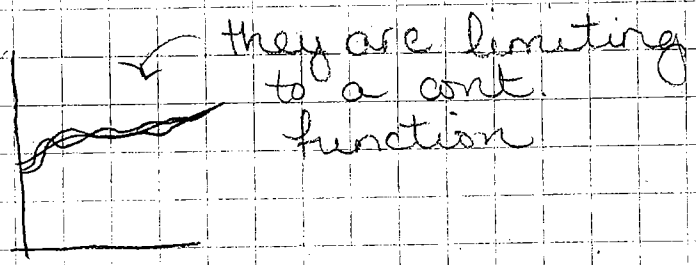 they are limiting
to a cont.
function